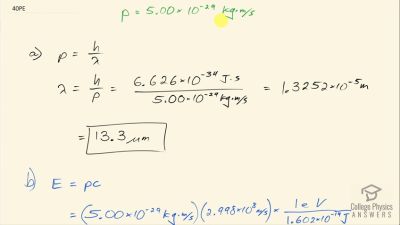 40PE
p = 5.00×10⁻²⁹ kg·m/s
a) p = h/λ
λ = h/p = 6.626×10⁻³⁴ J·s / 5.00×10⁻²⁹ kg·m/s = 1.3252×10⁻⁵ m
= 13.3 μm
b) E = pc
= (5.00×10⁻²⁹ kg·m/s)(2.998×10⁸ m/s) × 1eV / 1.602×10⁻¹⁹ J
College Physics
ANSWERS